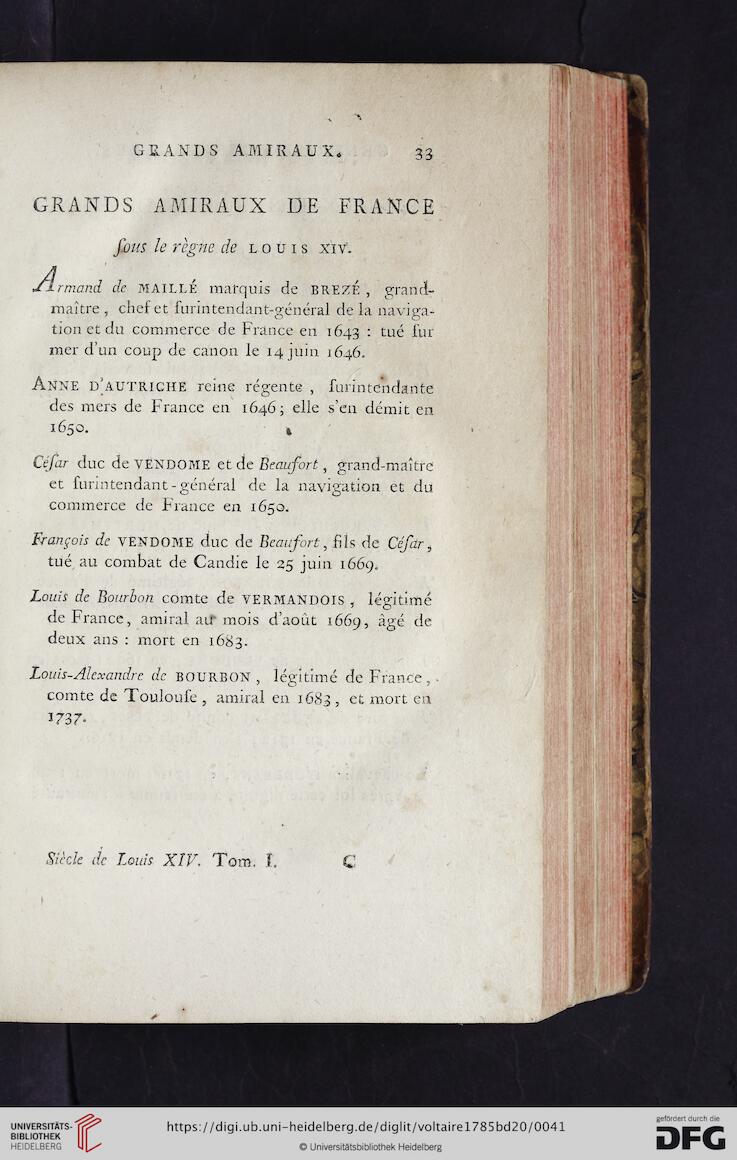 GRANDS AMIRAUX. 33
GRANDS AMIRAUX DE FRANCE
ſous le règne de LOUIS XIV.
Armand de MAILLÉ marquis de BREZÉ, grand-
maître, chef et ſurintendant-général de la naviga-
tion et du commerce de France en 1643 : tué ſur
mer d'un coup de canon le 14 juin 1646.
ANNE D'AUTRICHE reine régente, ſurintendante
des mers de France en 1646; elle s'en démit en
1650.
Céſar duc de VENDOME et de Beaufort, grand-maître
et ſurintendant-général de la navigation et du
commerce de France en 1650.
François de VENDOME duc de Beaufort, fils de Céſar,
tué au combat de Candie le 25 juin 1669.
Louis de Bourbon comte de VERMANDOIS, légitimé
de France, amiral au mois d'août 1669, âgé de
deux ans : mort en 1683.
Louis-Alexandre de BOURBON, légitimé de France,
comte de Toulouſe, amiral en 1683, et mort en
1737.
Siècle de Louis XIV. Tom. I. C
UNIVERSITÄTS-
BIBLIOTHEK
HEIDELBERG
https://digi.ub.uni-heidelberg.de/diglit/voltaire1785bd20/0041
© Universitätsbibliothek Heidelberg
gefördert durch die
DFG